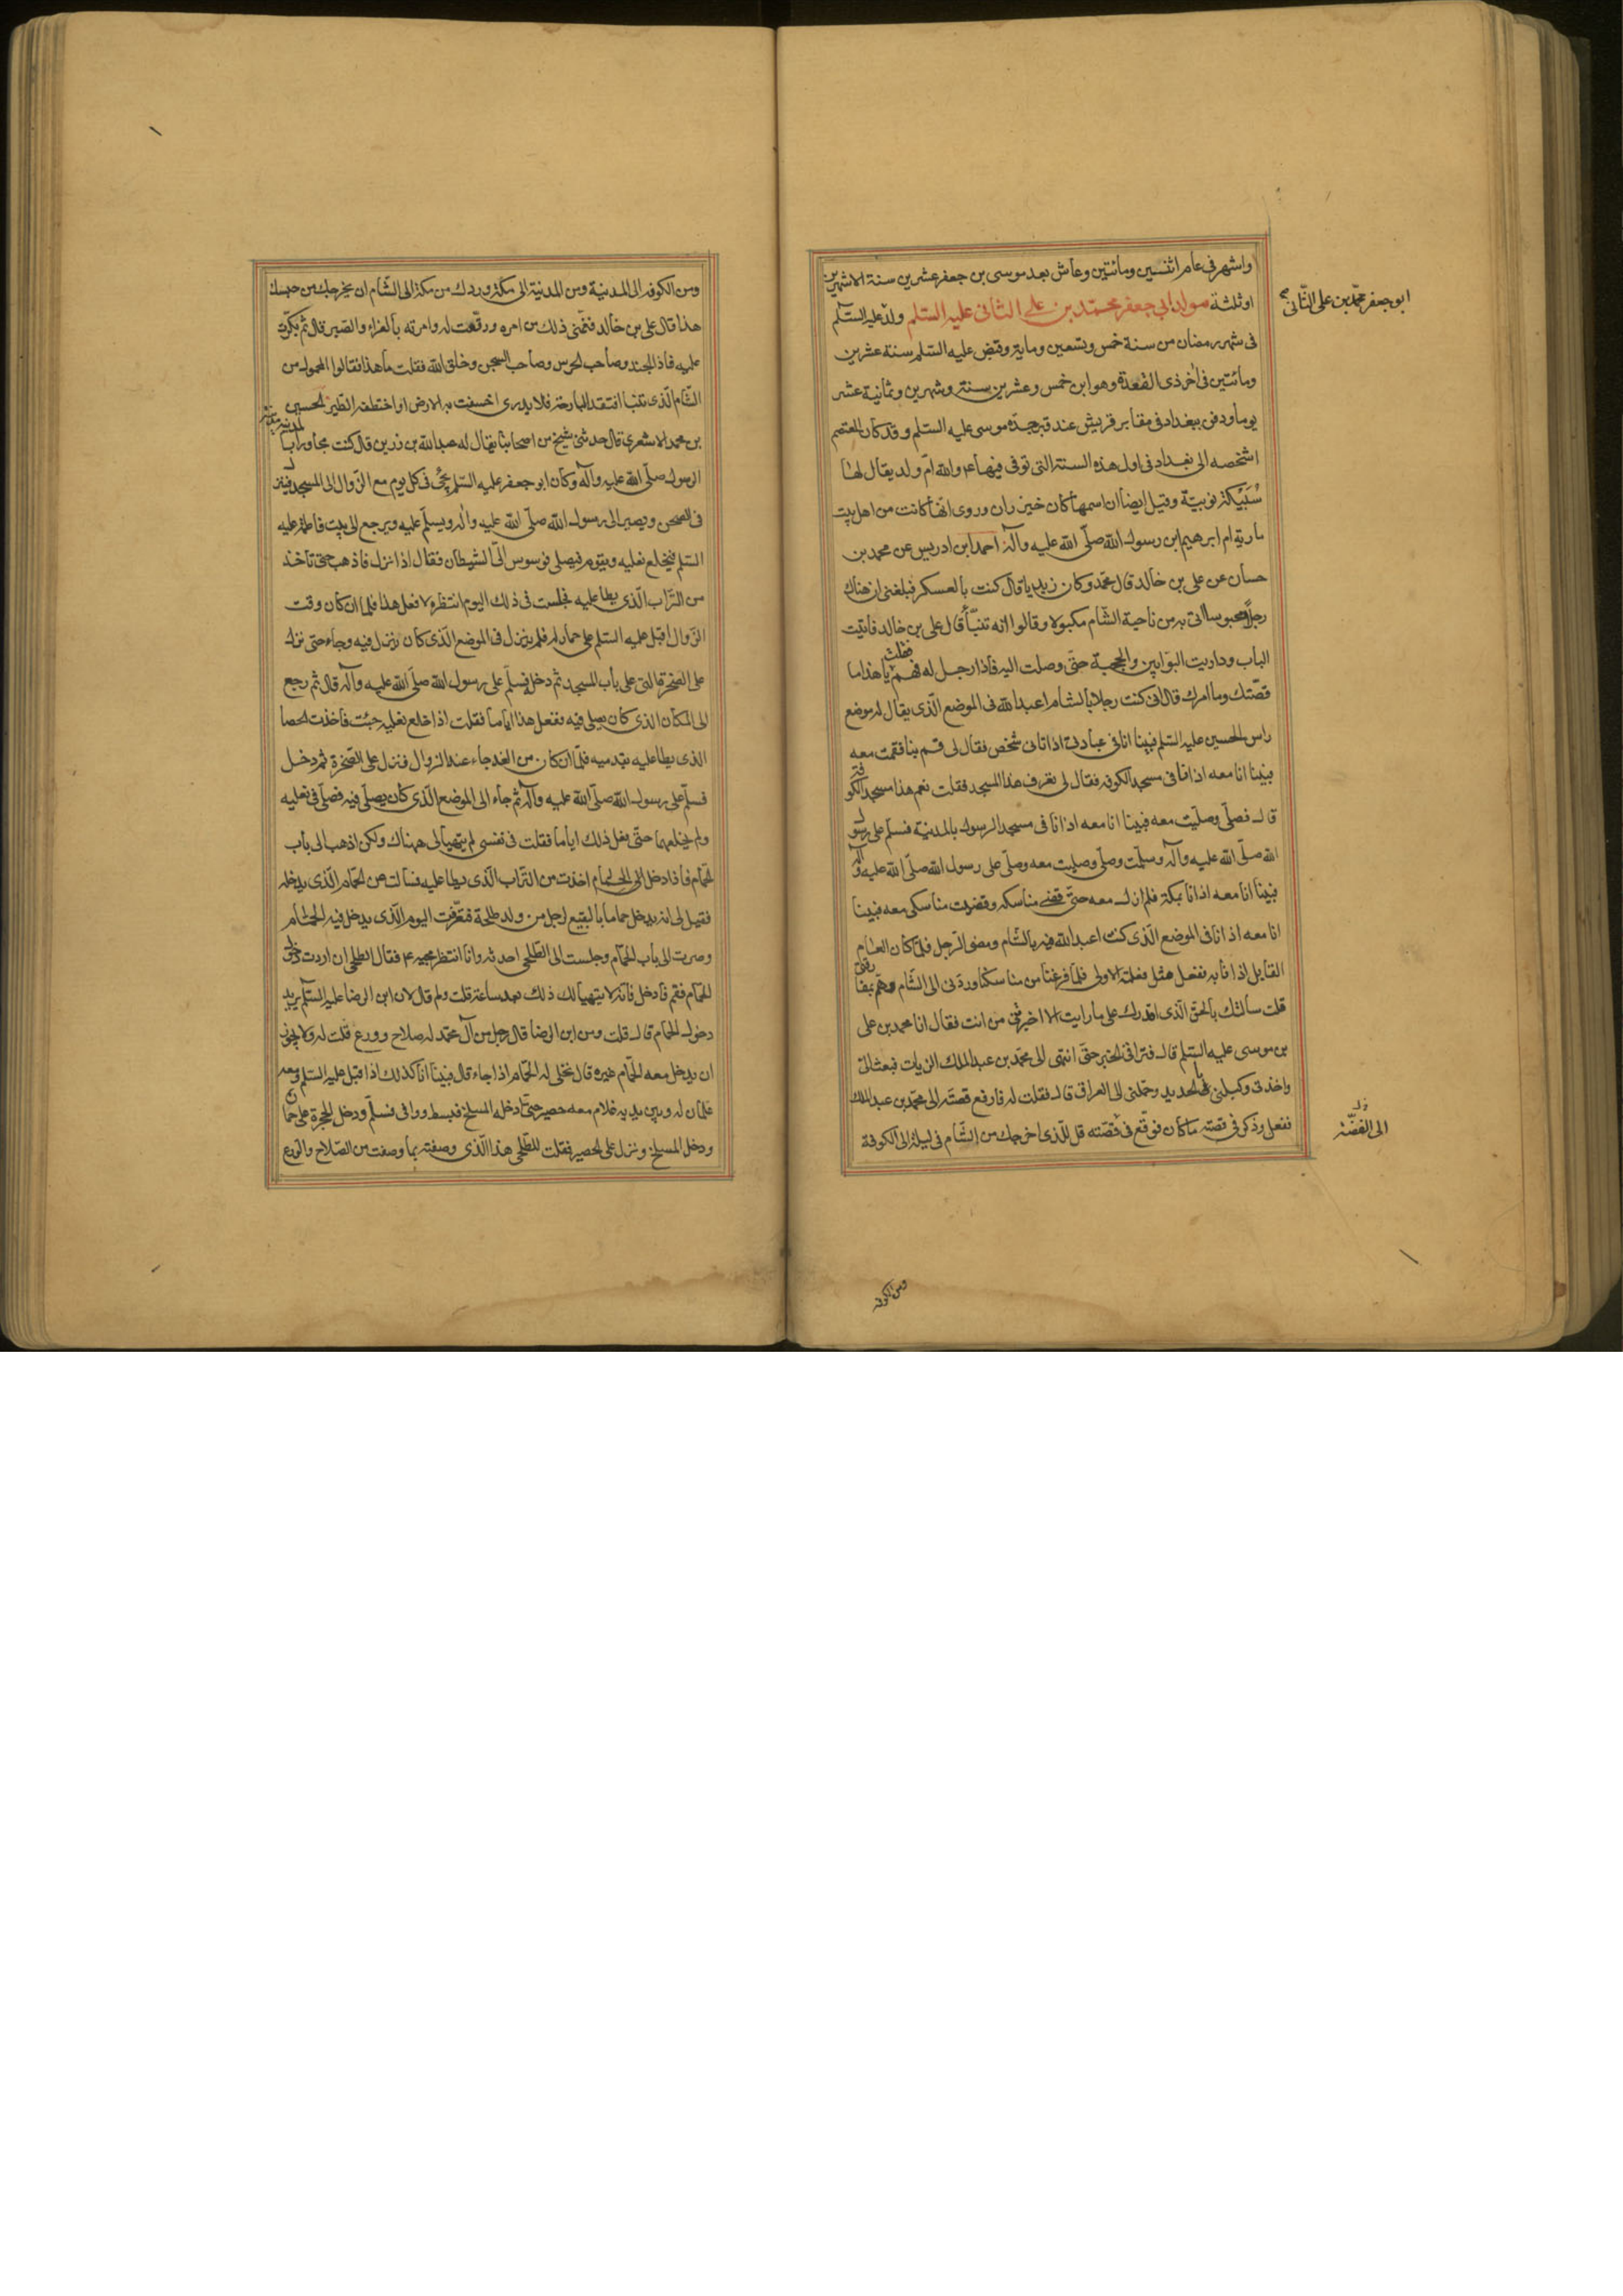 واشهر فى عام اثنين ومائتين وعاش بعد موسى بن جعفر عشرين سنة الا شهرين
ابو جعفر محمد بن على الثانى
او ثلثة مولد ابى جعفر محمد بن على الثانى عليه السلم ولد عليه السلم
فى شهر رمضان من سنة خمس وتسعين وماية وقبض عليه السلم سنة عشرين
ومائتين فى آخر ذى القعدة وهو ابن خمس وعشرين سنة وشهرين وثمانية عشر
يوما ودفن ببغداد فى مقابر قريش عند قبر جده موسى عليه السلم وقد كان المعتصم
اشخصه الى بغداد فى اول هذه السنة التى توفى فيها ع وامه ام ولد يقال لها
سبيكة نوبية وقيل ايضا ان اسمها كان خيزران وروى انها كانت من اهل بيت
مارية ام ابرهيم ابن رسول الله صلى الله عليه وآله احمد ابن ادريس عن محمد بن
حسان عن على بن خالد قال محمد وكان زيديا قال كنت بالعسكر فبلغنى ان هناك
رجل محبوس اتى به من ناحية الشام مكبولا وقالوا انه تنبأ قال على بن خالد فاتيت
الباب وداريت البوابين والحجبة حتى وصلت اليه فاذا رجل له فهم فقلت يا هذا ما
قصتك وما امرك قال انى كنت رجلا بالشام اعبد الله فى الموضع الذى يقال له موضع
راس الحسين عليه السلم فبينا انا فى عبادتى اذ اتانى شخص فقال لى قم بنا فقمت معه
فبينا انا معه اذ انا فى مسجد الكوفه فقال لى تعرف هذا المسجد فقلت نعم هذا مسجد الكوفة
قال فصلى وصليت معه فبينا انا معه اذ انا فى مسجد الرسول بالمدينة فسلم على رسول
الله صلى الله عليه وآله وسلمت وصلى وصليت معه وصلى على رسول الله صلى الله عليه وآله
فبينا انا معه اذ انا بمكة فلم ازل معه حتى قضى مناسكه وقضيت مناسكى معه فبينا
انا معه اذ انا فى الموضع الذى كنت اعبد الله فيه بالشام ومضى الرجل فلما كان العام
القابل اذ انا به ففعل مثل فعلته الاولى فلما فرغنا من مناسكنا وردنى الى الشام وهم بمفارقتى
قلت سالتك بالحق الذى اقدرك على ما رايت الا اخبرتنى من انت فقال انا محمد بن على
بن موسى عليه السلم قال فتراقى الخبر حتى انتهى الى محمد بن عبد الملك الزيات فبعث الى
واخذنى وكبلنى فى الحديد وحملنى الى العراق قال فقلت له فارفع قصته الى محمد بن عبد الملك
ففعل وذكر فى قصته ما كان فوقع فى قصته قل للذى اخرجك من الشام فى ليلة الى الكوفة
ومن الكوفه
ومن الكوفه الى المدينة ومن المدينة الى مكة وردك من مكة الى الشام ان يخرجك من حبسك
هذا قال على بن خالد فغمنى ذلك من امره ورققت له وامرته بالعزاء والصبر قال ثم بكرت
عليه فاذا الجند وصاحب الحرس وصاحب السجن وخلق الله فقلت ما هذا فقالوا المحمول من
الشام الذى تنبا افتقد البارحة فلا يدرى اخسفت به الارض او اختطفه الطير الحسين
بن محمد الاشعرى قال حدثنى شيخ من اصحابنا يقال له عبد الله بن رزين قال كنت مجاورا بالمدينة مدينة
الرسول صلى الله عليه وآله وكان ابو جعفر عليه السلم يجئ فى كل يوم مع الزوال الى المسجد فينزل
فى الصحن ويصير الى رسول الله صلى الله عليه واله ويسلم عليه ويرجع الى بيت فاطمة عليه
السلم فيخلع نعليه ويقوم فيصلى فوسوس الى الشيطان فقال اذا نزل فاذهب حتى تاخذ
من التراب الذى يطا عليه فجلست فى ذلك اليوم انتظره لا فعل هذا فلما ان كان وقت
الزوال اقبل عليه السلم على حمار له فلم ينزل فى الموضع الذى كان ينزل فيه وجاء حتى نزل
على الصخرة التى على باب المسجد ثم دخل فسلم على رسول الله صلى الله عليه وآله قال ثم رجع
الى المكان الذى كان يصلى فيه ففعل هذا اياما فقلت اذا خلع نعليه جئت فاخذت الحصا
الذى يطا عليه بقدميه فلما ان كان من الغد جاء عند الزوال فنزل على الصخرة ثم دخل
فسلم على رسول الله صلى الله عليه وآله ثم جاء الى الموضع الذى كان يصلى فيه فصلى فى نعليه
ولم يخلعهما حتى فعل ذلك اياما فقلت فى نفسى لم يتهيا لى ههناك ولكن اذهب الى باب
الحمام فاذا دخل الى الحمام اخذت من التراب الذى يطا عليه فسالت عن الحمام الذى يدخله
فقيل لى انه يدخل حماما بالبقيع لرجل من ولد طلحة فتعرفت اليوم الذى يدخل فيه الحمام
وصرت الى باب الحمام وجلست الى الطلحى احدثه وانا انتظر مجيه ع فقال الطلحى ان اردت دخول
الحمام فقم فادخل فانه لا يتهيا لك ذلك بعد ساعة قلت ولم قال لان ابن الرضا عليه السلم يريد
دخول الحمام قال قلت ومن ابن الرضا قال رجل من آل محمد له صلاح وورع قلت له ولا يجوز
ان يدخل معه الحمام غيره قال نخلى له الحمام اذا جاء قال فبينا انا كذلك اذ اقبل عليه السلم ومعه
غلمان له وبين يديه غلام معه حصير حتى ادخله المسلخ فبسطه ووافى فسلم ودخل الحجرة على حماره
ودخل المسلخ ونزل على الحصير فقلت للطلحى هذا الذى وصفته بما وصفت من الصلاح والورع